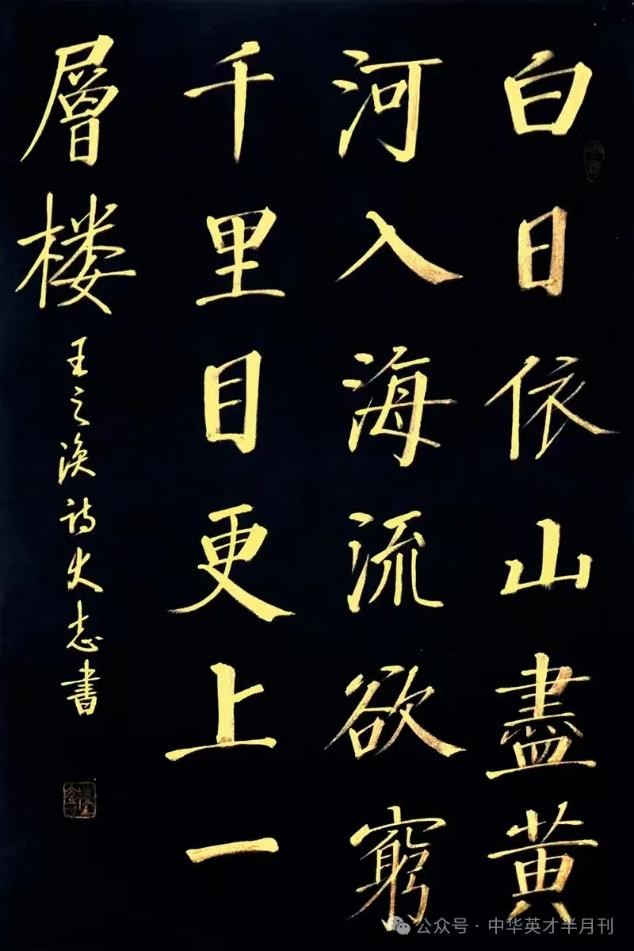 白日依山盡黄
河入海流欲窮
千里目更上一
層楼
王之涣诗史志書
公众号·中华英才半月刊